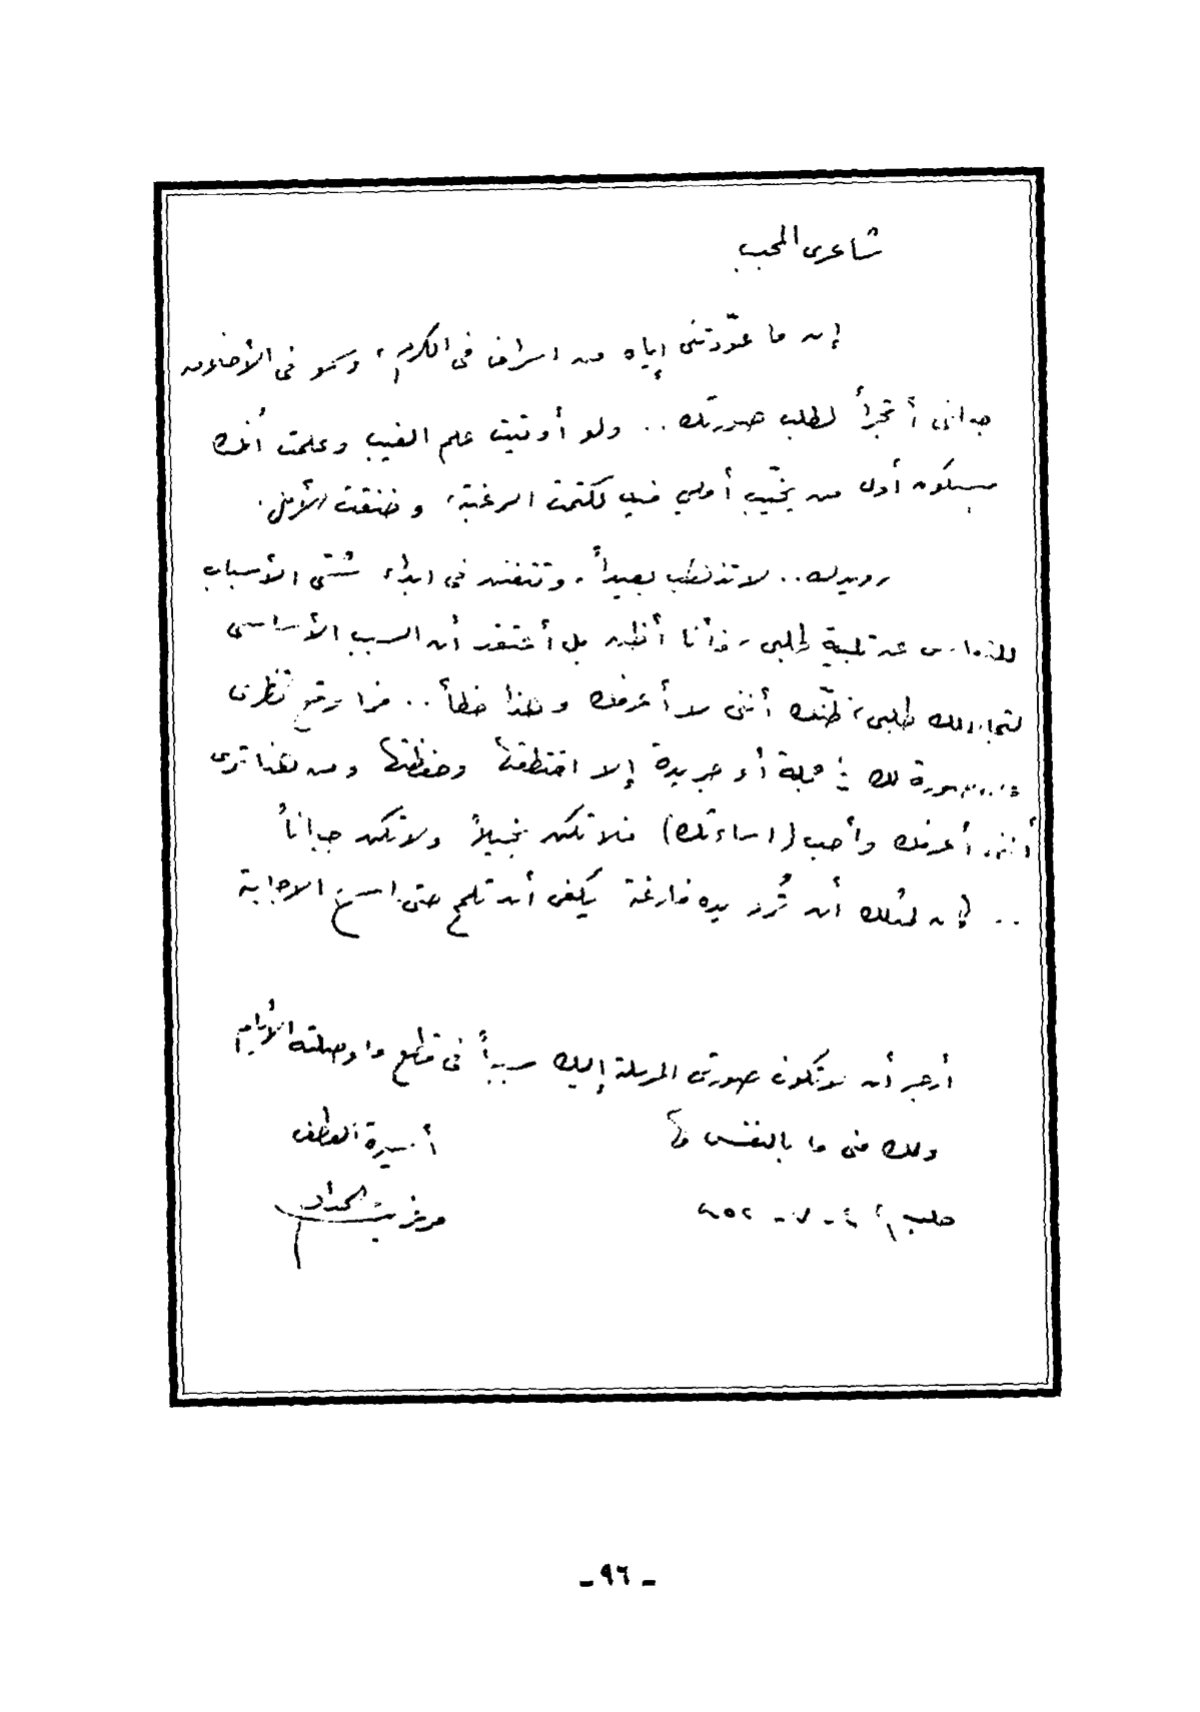 شاعرى المحبب
إن ما عوّدتنى إياه من اسراف فى الكرم، وسمو فى الأخلاق
جعلنى أتجرأ لطلب صورتك .. ولو أوتيت علم الغيب وعلمت أنك
ستكون أول من يخيّب أملي فيه لكتمت الرغبة، وخنقت الأمل.
رويدك .. لا تذهب بعيداً، وتتفنن فى ابداء شتى الأسباب
عن تلبية طلبى، فأنا أظن بل أعتقد أن السبب الأساسى
طلبى، ظنّك أننى لا أعرفك وهذا خطأ .. فما وقع نظرى
صورة لك فى مجلة أو جريدة إلا اقتطعتها وحفظتها ومن هنا ترى
أننى أعرفك وأحب (اساءتك) فلا تكن بخيلاً ولا تكن جباناً
.. لمثلك أن تُرد يده فارغة يكفى أن تلمح حتى الاجابة
أرجو أن لا تكون صورتى المرسلة إليك سبباً فى قطع ما وصلته الأيام
ولك منى ما بالنفس لها
أسيرة العطف
حلب
الحداد
- ٩٦ -